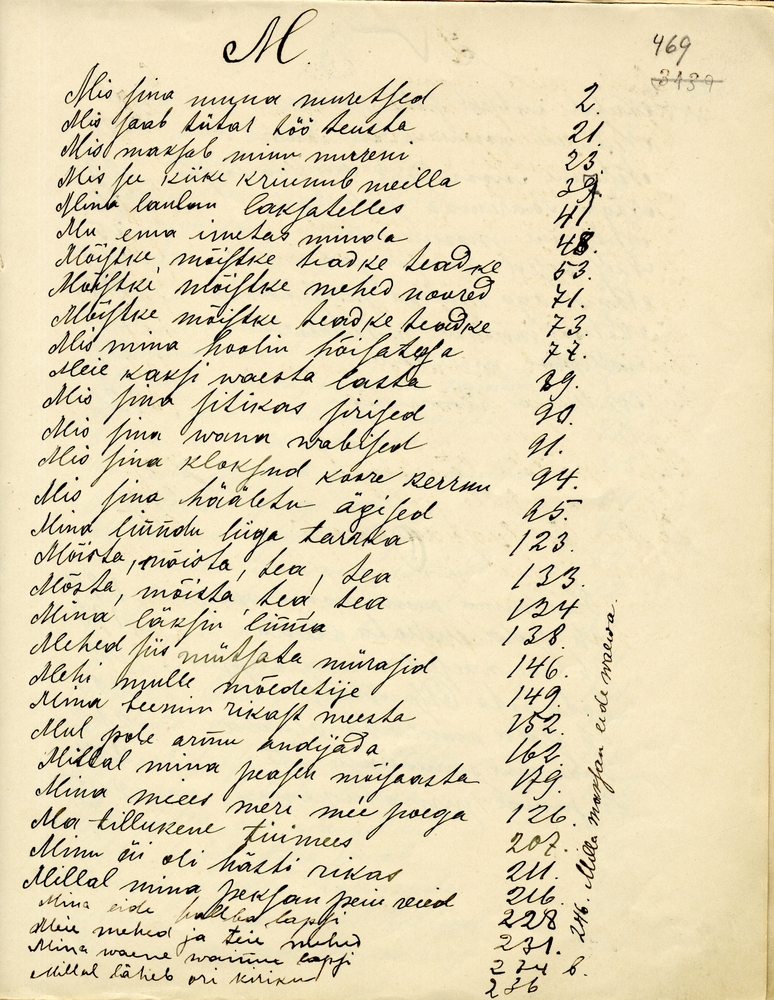 M.
469
3439
Mis sina muna muretsed 2.
Mis saab tütar töö teusta 21.
Mis maksab minu murreni 23.
Mis se kiike kriunub meilla 39
Mina laulan laksatelles 41
Mu ema imetas minda 48.
Mõistke, mõistke teadke teadke 53.
Mõistke mõistke mehed noored 71.
Mõistke mõistke teadke teadke 73.
Mis mina hoolin hõisatesa 77.
Meie kaksi waesta lasta 89.
Mis sina sitikas sirised 90.
Mis sina wana wabised 91.
Mis sina kloksud koore kerrnu 94.
Mis sina hääletu ägised 95.
Mina sündu liiga tarrka 123.
Mõista, mõista, tea, tea 133.
Mõsta, mõista, tea, tea 134
Mina läksin linna 138.
Mehed siis mütsata mürasid 146.
Mehi mulle mõedetije 149.
Mina teenin rikast meesta 152.
Mul pole armu andijada 162.
Millal mina peasen mõisaasta 179.
Mina mees meri mée poega 126.
Ma tillukene tiimees 207.
Minu äi oli hästi rikas 211.
Millal mina peksan peiu reied 216.
Mina eide halba lapsi 228
Meie mehed ja teie mehed 231.
Mina waene waime lapsi 234 b.
Millal läheb ori kiriku 236
246. Milla maksan eide waewa.